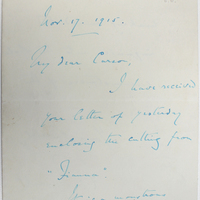 Nov. 17. 1915.
My dear Curzon,
I have received
your letter of yesterday
enclosing the cutting from